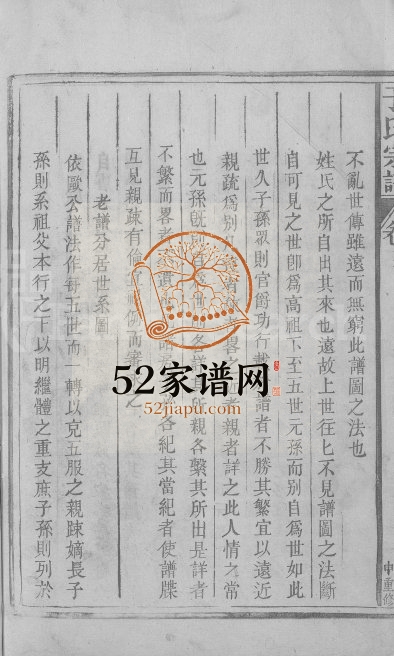 于氏宗譜
卷
不亂世傳雖遠而無窮此譜圖之法也
姓氏之所自出其來也遠故上世往匕不見譜圖之法斷
自可見之世卽爲高祖下至五世元孫而别自爲世如此
世久子孫衆則官爵功行載譜者不勝其繁宜以遠近
親疏爲别者畧之親者詳之此人情之常
也元孫旣别所親各繫其所出是詳者
不繁而畧者各紀其當紀者使譜牒
互見親疎有倫例而審之
老譜分居世系圖
依歐公譜法作每五世而一轉以克五服之親踈嫡長子
孫則系祖父本行之下以明繼體之重支庶子孫則列於
重修
52家谱网
52jiapu.com